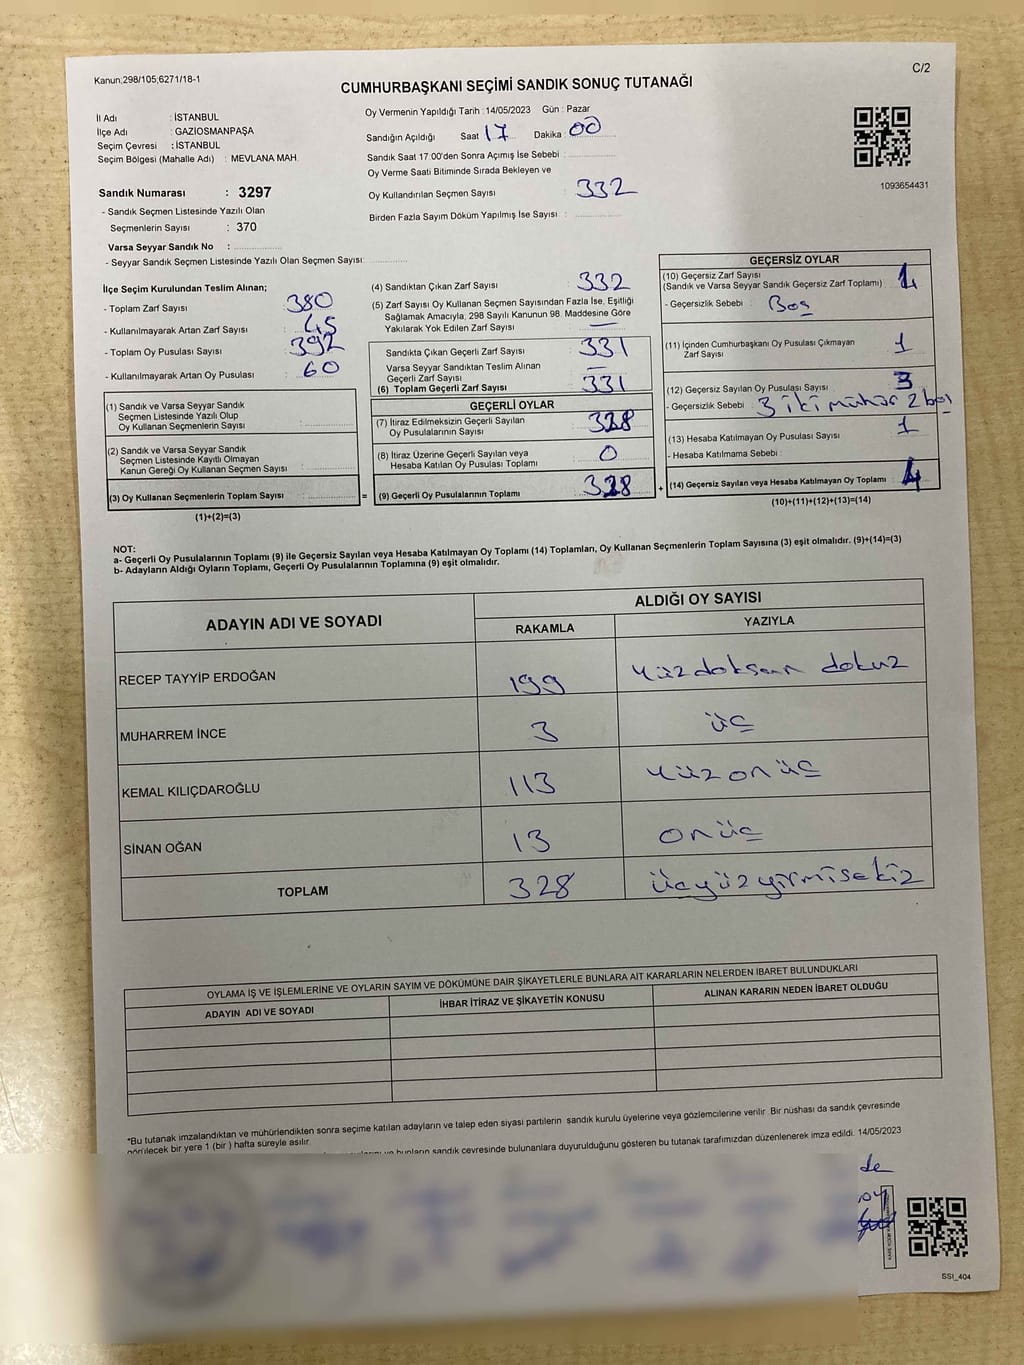 Kanun;298/105,6271/18-1
C/2
CUMHURBAŞKANI SEÇİMİ SANDIK SONUÇ TUTANAĞI
İl Adı : İSTANBUL
İlçe Adı : GAZİOSMANPAŞA
Seçim Çevresi : İSTANBUL
Seçim Bölgesi (Mahalle Adı) : MEVLANA MAH.
Sandık Numarası : 3297
- Sandık Seçmen Listesinde Yazılı Olan
Seçmenlerin Sayısı : 370
Varsa Seyyar Sandık No :
- Seyyar Sandık Seçmen Listesinde Yazılı Olan Seçmen Sayısı:
Oy Vermenin Yapıldığı Tarih : 14/05/2023 Gün : Pazar
Sandığın Açıldığı Saat 17 Dakika : 00
Sandık Saat 17:00'den Sonra Açımış İse Sebebi :
Oy Verme Saati Bitiminde Sırada Bekleyen ve
Oy Kullandırılan Seçmen Sayısı : 332
Birden Fazla Sayım Döküm Yapılmış İse Sayısı :
1093654431
İlçe Seçim Kurulundan Teslim Alınan;
- Toplam Zarf Sayısı : 380
- Kullanılmayarak Artan Zarf Sayısı : 45
- Toplam Oy Pusulası Sayısı : 392
- Kullanılmayarak Artan Oy Pusulası : 60
(1) Sandık ve Varsa Seyyar Sandık
Seçmen Listesinde Yazılı Olup
Oy Kullanan Seçmenlerin Sayısı :
(2) Sandık ve Varsa Seyyar Sandık
Seçmen Listesinde Kayıtlı Olmayan
Kanun Gereği Oy Kullanan Seçmen Sayısı :
(3) Oy Kullanan Seçmenlerin Toplam Sayısı :
(1)+(2)=(3)
=
(4) Sandıktan Çıkan Zarf Sayısı : 332
(5) Zarf Sayısı Oy Kullanan Seçmen Sayısından Fazla İse, Eşitliği
Sağlamak Amacıyla, 298 Sayılı Kanunun 98. Maddesine Göre
Yakılarak Yok Edilen Zarf Sayısı : —
Sandıkta Çıkan Geçerli Zarf Sayısı : 331
Varsa Seyyar Sandıktan Teslim Alınan
Geçerli Zarf Sayısı : —
(6) Toplam Geçerli Zarf Sayısı : 331
GEÇERLİ OYLAR
(7) İtiraz Edilmeksizin Geçerli Sayılan
Oy Pusulalarının Sayısı : 328
(8) İtiraz Üzerine Geçerli Sayılan veya
Hesaba Katılan Oy Pusulası Toplamı : 0
(9) Geçerli Oy Pusulalarının Toplamı : 328
+
GEÇERSİZ OYLAR
(10) Geçersiz Zarf Sayısı
(Sandık ve Varsa Seyyar Sandık Geçersiz Zarf Toplamı) : 1
- Geçersizlik Sebebi : Boş
(11) İçinden Cumhurbaşkanı Oy Pusulası Çıkmayan
Zarf Sayısı : 1
(12) Geçersiz Sayılan Oy Pusulası Sayısı : 3
- Geçersizlik Sebebi : 3 iki mühür 2 boş
(13) Hesaba Katılmayan Oy Pusulası Sayısı : 1
- Hesaba Katılmama Sebebi :
(14) Geçersiz Sayılan veya Hesaba Katılmayan Oy Toplamı : 4
(10)+(11)+(12)+(13)=(14)
NOT:
a- Geçerli Oy Pusulalarının Toplamı (9) ile Geçersiz Sayılan veya Hesaba Katılmayan Oy Toplamı (14) Toplamları, Oy Kullanan Seçmenlerin Toplam Sayısına (3) eşit olmalıdır. (9)+(14)=(3)
b- Adayların Aldığı Oyların Toplamı, Geçerli Oy Pusulalarının Toplamına (9) eşit olmalıdır.
ADAYIN ADI VE SOYADI
ALDIĞI OY SAYISI
RAKAMLA YAZIYLA
RECEP TAYYİP ERDOĞAN 199 yüzdoksan dokuz
MUHARREM İNCE 3 üç
KEMAL KILIÇDAROĞLU 113 yüzonüç
SİNAN OĞAN 13 onüç
TOPLAM 328 üçyüzyirmisekiz
OYLAMA İŞ VE İŞLEMLERİNE VE OYLARIN SAYIM VE DÖKÜMÜNE DAİR ŞİKAYETLERLE BUNLARA AİT KARARLARIN NELERDEN İBARET BULUNDUKLARI
ADAYIN ADI VE SOYADI İHBAR İTİRAZ VE ŞİKAYETİN KONUSU ALINAN KARARIN NEDEN İBARET OLDUĞU
*Bu tutanak imzalandıktan ve mühürlendikten sonra seçime katılan adayların ve talep eden siyasi partilerin sandık kurulu üyelerine veya gözlemcilerine verilir. Bir nüshası da sandık çevresinde
görülecek bir yere 1 (bir ) hafta süreyle asılır.
bunların sandık çevresinde bulunanlara duyurulduğunu gösteren bu tutanak tarafımızdan düzenlenerek imza edildi. 14/05/2023
de
SSI_404